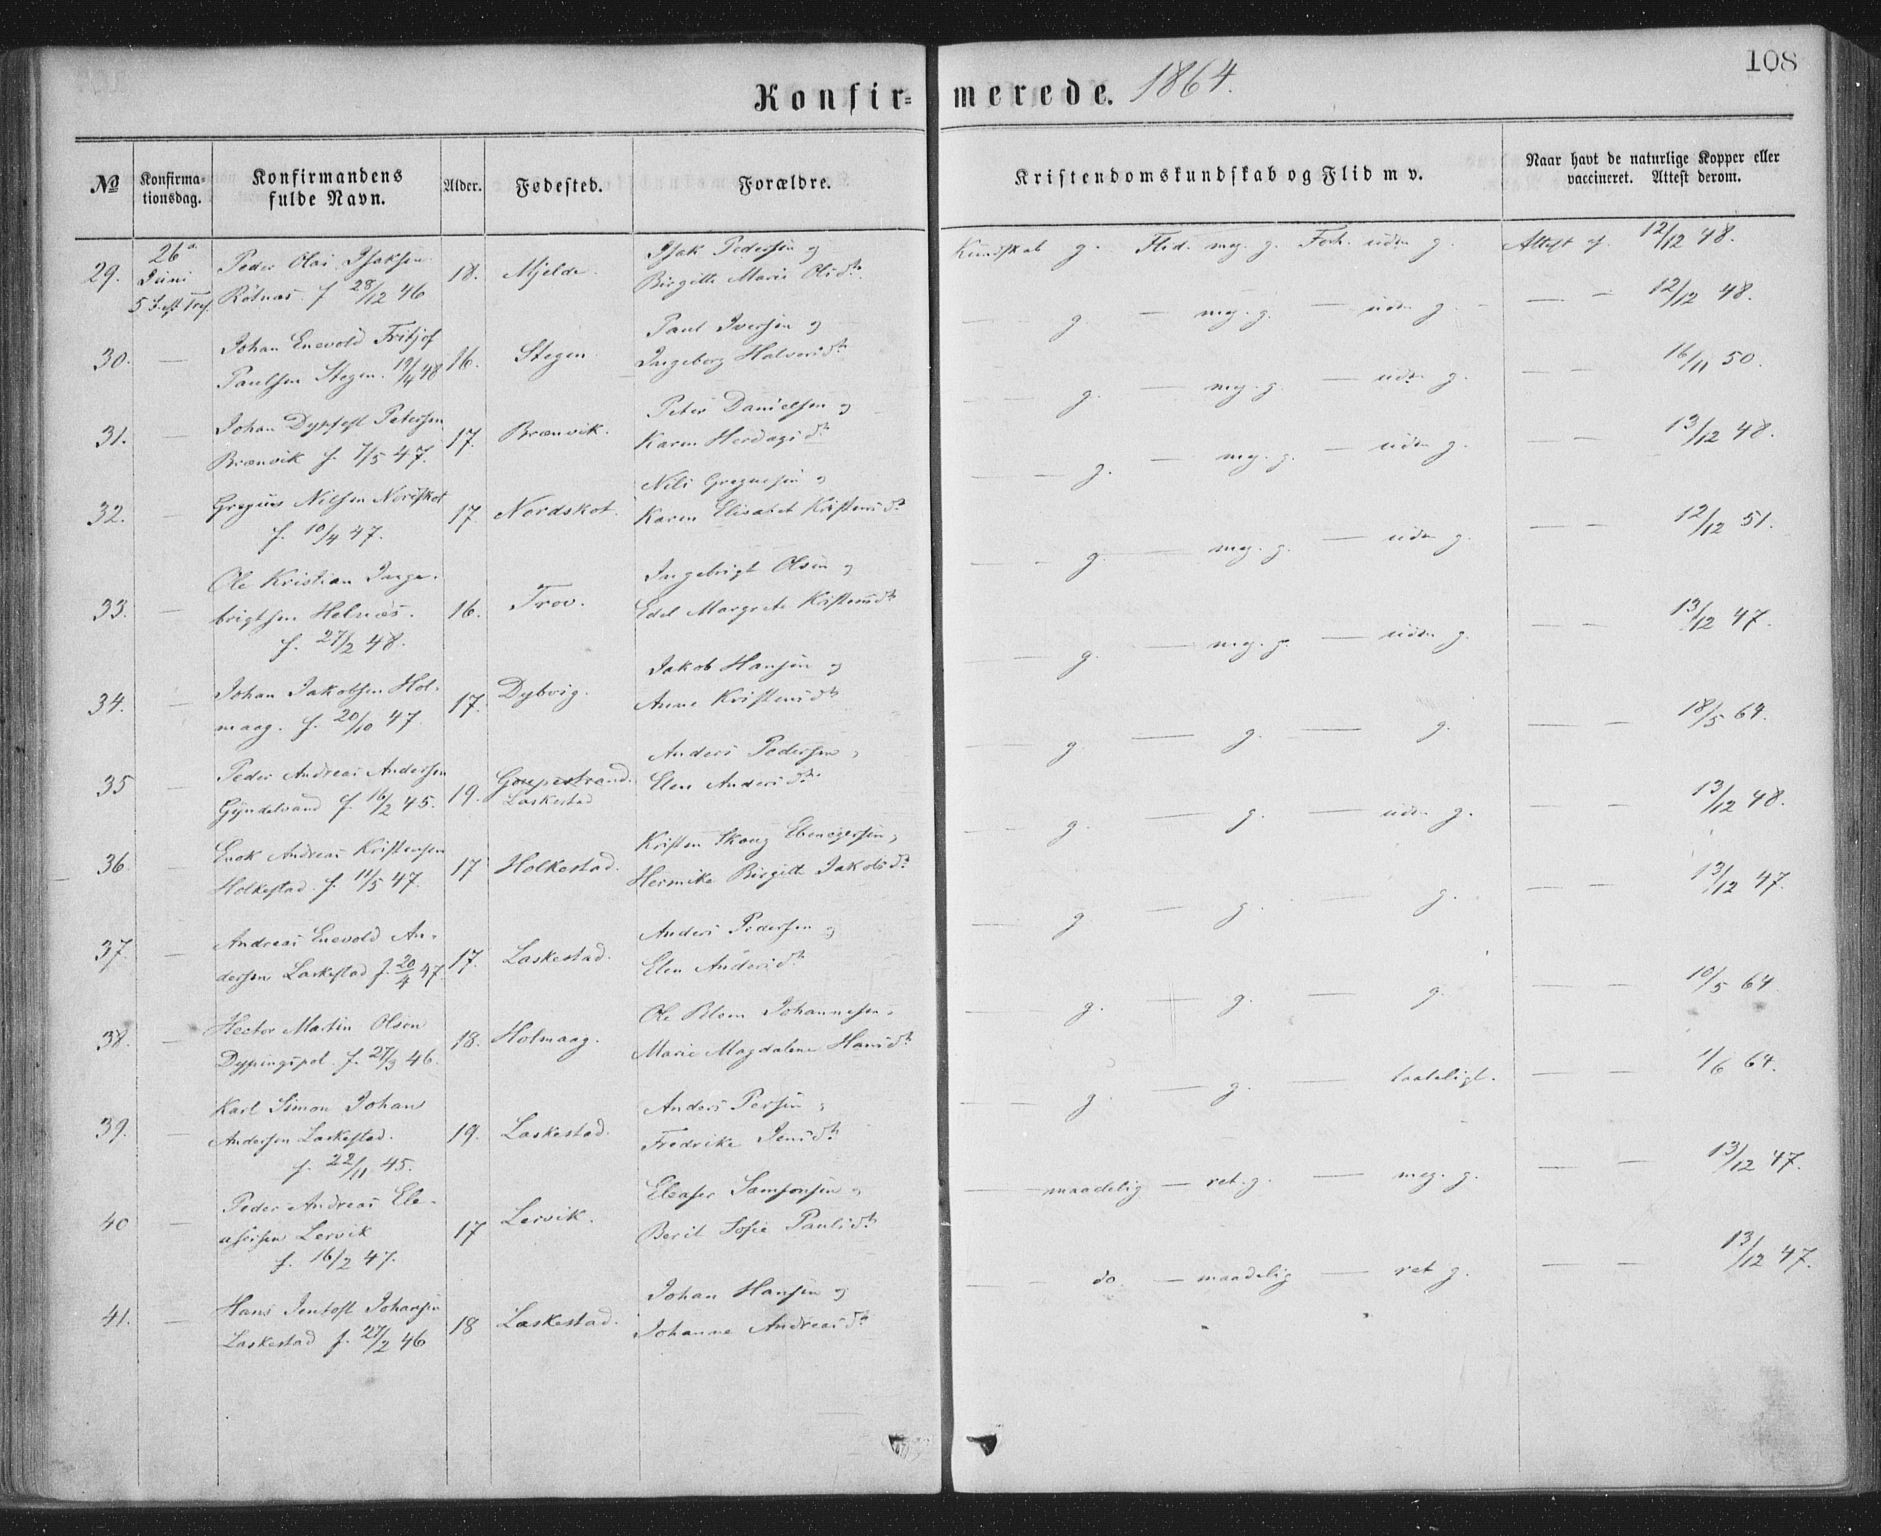 108
Konfir=merede. 1864.
№ Konfirma=tionsdag. Konfirmandens fulde Navn. Alder. Fødested. Forældre. Kristendomskundskab og Flid m v. Naar havt de naturlige Kopper eller vaccineret. Attest derom.
26de Juni 5 S. eft Tref.
29. Peder Olai Isaksen 18. Mjelde. Isak Pedersen og Kundskab g. Flid. meg. g. Forh. uden g. Attest af 12/12 48.
Rötnæs. f 28/12 46 Birgitte Marie Olsdtr
30. — Johan Enevold Fritjof 16. Stegen. Paul Iversen og — g. — meg. g. — uden g. — — 12/12 48.
Paulsen Stegen. 19/4 48 Ingeborg Halvorsdtr
31. — Johan Petersen 17. Brænvik. Peter Danielsen og — g. — meg. g. — uden g. — — 16/11 50.
Brænvik f. 7/5 47. Karen Herdagsdtr
32. — Gregius Nilsen Nordskot 17 Nordskot. Nils Gregusen og — g. — meg. g. — uden g. — — 13/12 48.
f. 10/4 47. Karen Elisabet Kristensdtr
33. — Ole Kristian Inge- 16. Trov. Ingebrigt Olsen og — g. — meg. g. — uden g. — — 12/12 51.
brigtsen Helnæs. Edel Margrete Kristensdtr
f. 27/2 48.
34. — Johan Jakobsen Hol- 17. Dybvig. Jakob Hansen og — g. — meg. g. — uden g. — — 13/12 47.
maag. f. 20/10 47. Anne Kristensdtr
35 Peder Andreas Andersen 19. Laskestad Anders Pedersen, — g — g. — g. — — 18/5 64.
Gyndelvand f. 16/2 45. Elen Andersdtr
36. — Enok Andreas Kristensen 17 Holkestad. Kristen Skaug Ebenezersen, — g — g. — uden g. — — 13/12 48.
Holkestad. f. 11/5 47. Hermike Birgitte Jakobsdtr
37. — Andreas Enevold An- 17. Laskestad. Anders Pedersen og — g — g. — g. — — 13/12 47.
dersen Laskestad f. 20/4 47 Elen Andersdtr
38. — Hector Martin Olsen 18. Holmaag. Ole Johannesen, — g. — g. — g. — — 10/5 64.
Dypingspol. f. 27/3 46. Marie Magdalene Hansdtr
39. — Karl Simon Johan 19. Laskestad. Anders Persen, — g. — g. — taaleligt. — — 1/6 64.
Andersen Laskestad. Fredrike Jensdtr
f. 22/11 45.
40 — Peder Andreas Ele- 17 Lervik. Eleaser Samsonsen, — maadelig — ret. g. — meg. g. — — 13/12 47.
asersen Lervik Berit Sofie Paulsdtr
f. 16/2 47.
41. — Hans Jentoft Johansen 18 Laskestad. Johan Hansen og — do. — maadelig — ret g. — — 13/12 47.
Laskestad f. 27/2 46 Johanne Andreasdtr